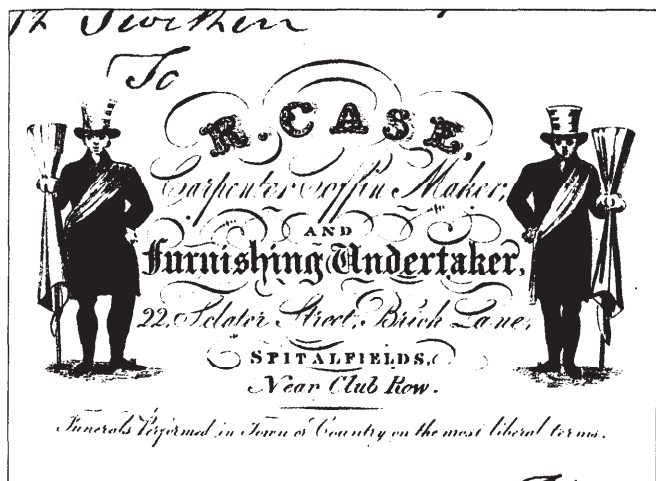 To
R. CASE,
Carpenter Coffin Maker,
AND
Furnishing Undertaker,
22, Sclater Street, Brick Lane,
SPITALFIELDS,
Near Club Row.
Funerals Performed in Town or Country on the most liberal terms.